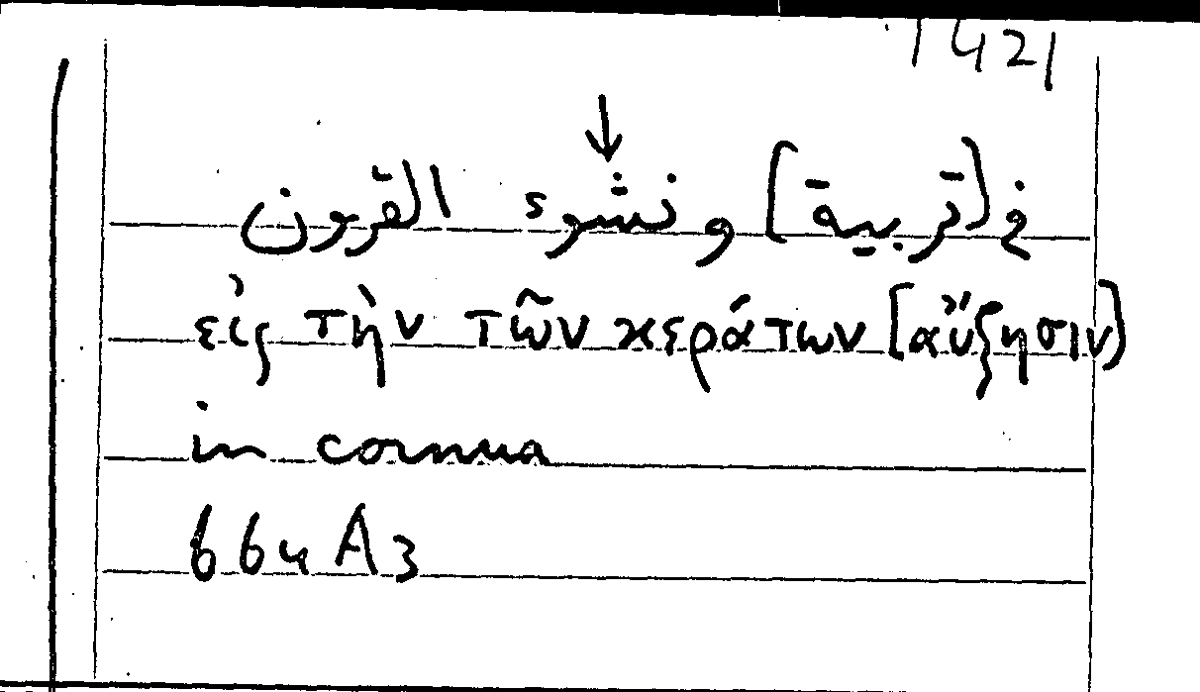 1421
↓
في [تربية] ونشوء القرون
εἰς τὴν τῶν κεράτων [αὔξησιν]
in cornua
664 A 3